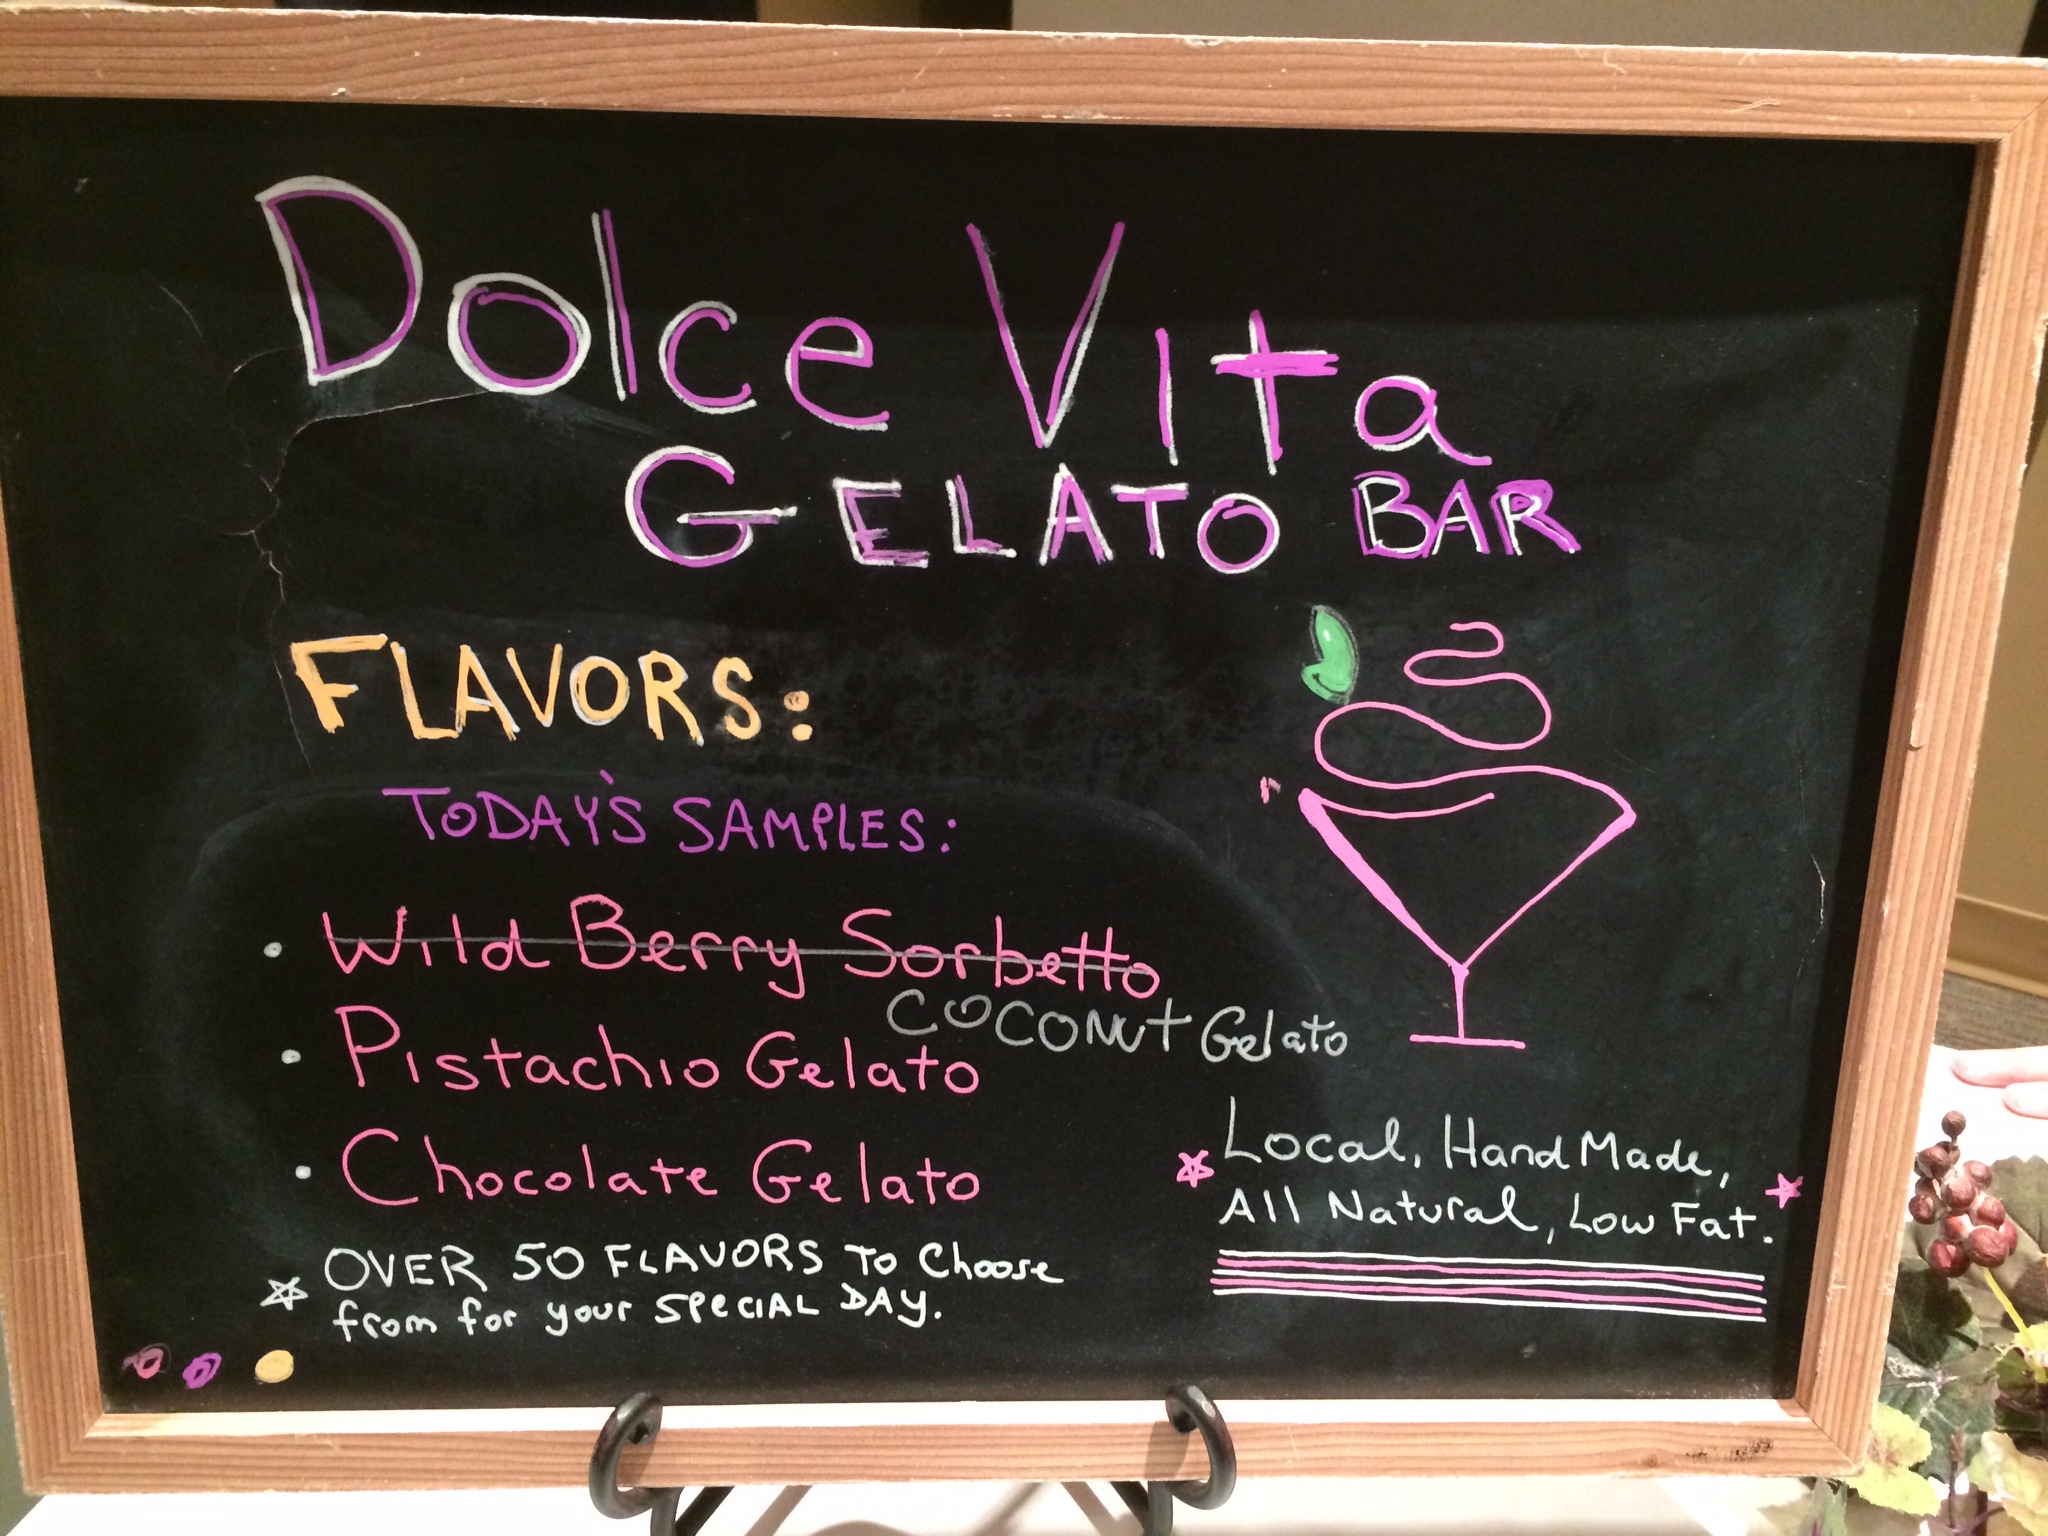 Dolce Vita
GELATO BAR
FLAVORS:
TODAY'S SAMPLES:
• Wild Berry Sorbetto
Coconut Gelato
• Pistachio Gelato
• Chocolate Gelato
OVER 50 FLAVORS To Choose
from for your SPECIAL DAY.
Local, HandMade,
All Natural, Low Fat.